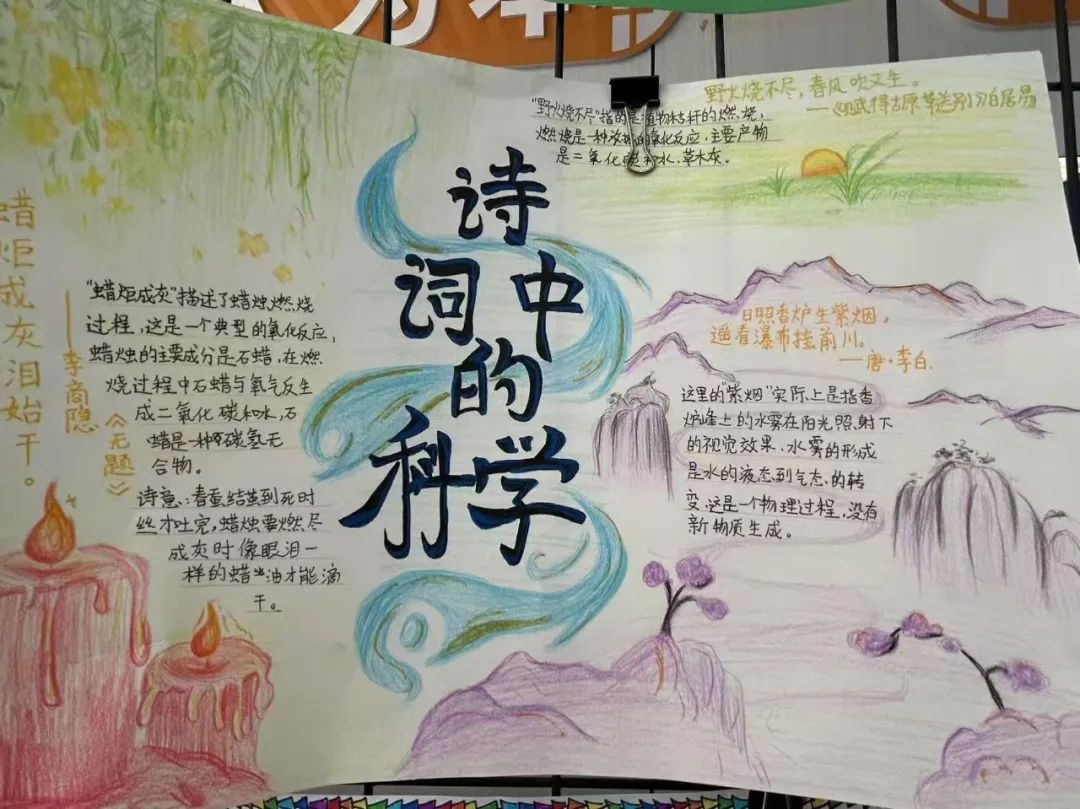 诗
词中
的
科学
"野火烧不尽"指的是植物秸秆的燃烧,
燃烧是一种放热的氧化反应,主要产物
是二氧化碳和水、草木灰。
野火烧不尽,春风吹又生。
——《赋得古原草送别》白居易
蜡炬成灰泪始干。
——李商隐
《无题》
"蜡炬成灰"描述了蜡烛燃烧
过程,这是一个典型的氧化反应,
蜡烛的主要成分是石蜡,在燃
烧过程中石蜡与氧气反生
成二氧化碳和水,石
蜡是一种碳氢无
合物。
诗意:春蚕结茧到死时
丝才吐完,蜡烛要燃尽
成灰时像眼泪一
样的蜡油才能滴
干。
日照香炉生紫烟,
遥看瀑布挂前川。
——唐·李白
这里的"紫烟"实际上是指香
炉峰上的水雾在阳光照射下
的视觉效果,水雾的形成
是水的液态到气态的转
变,这是一个物理过程,没有
新物质生成。